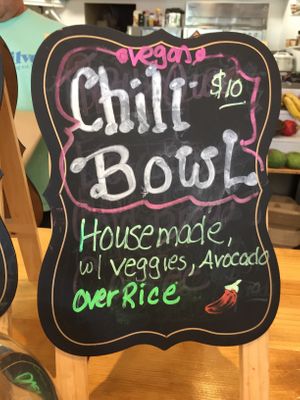 vegan
Chili $10
BOWL
Housemade,
w/ veggies, Avocado
over Rice